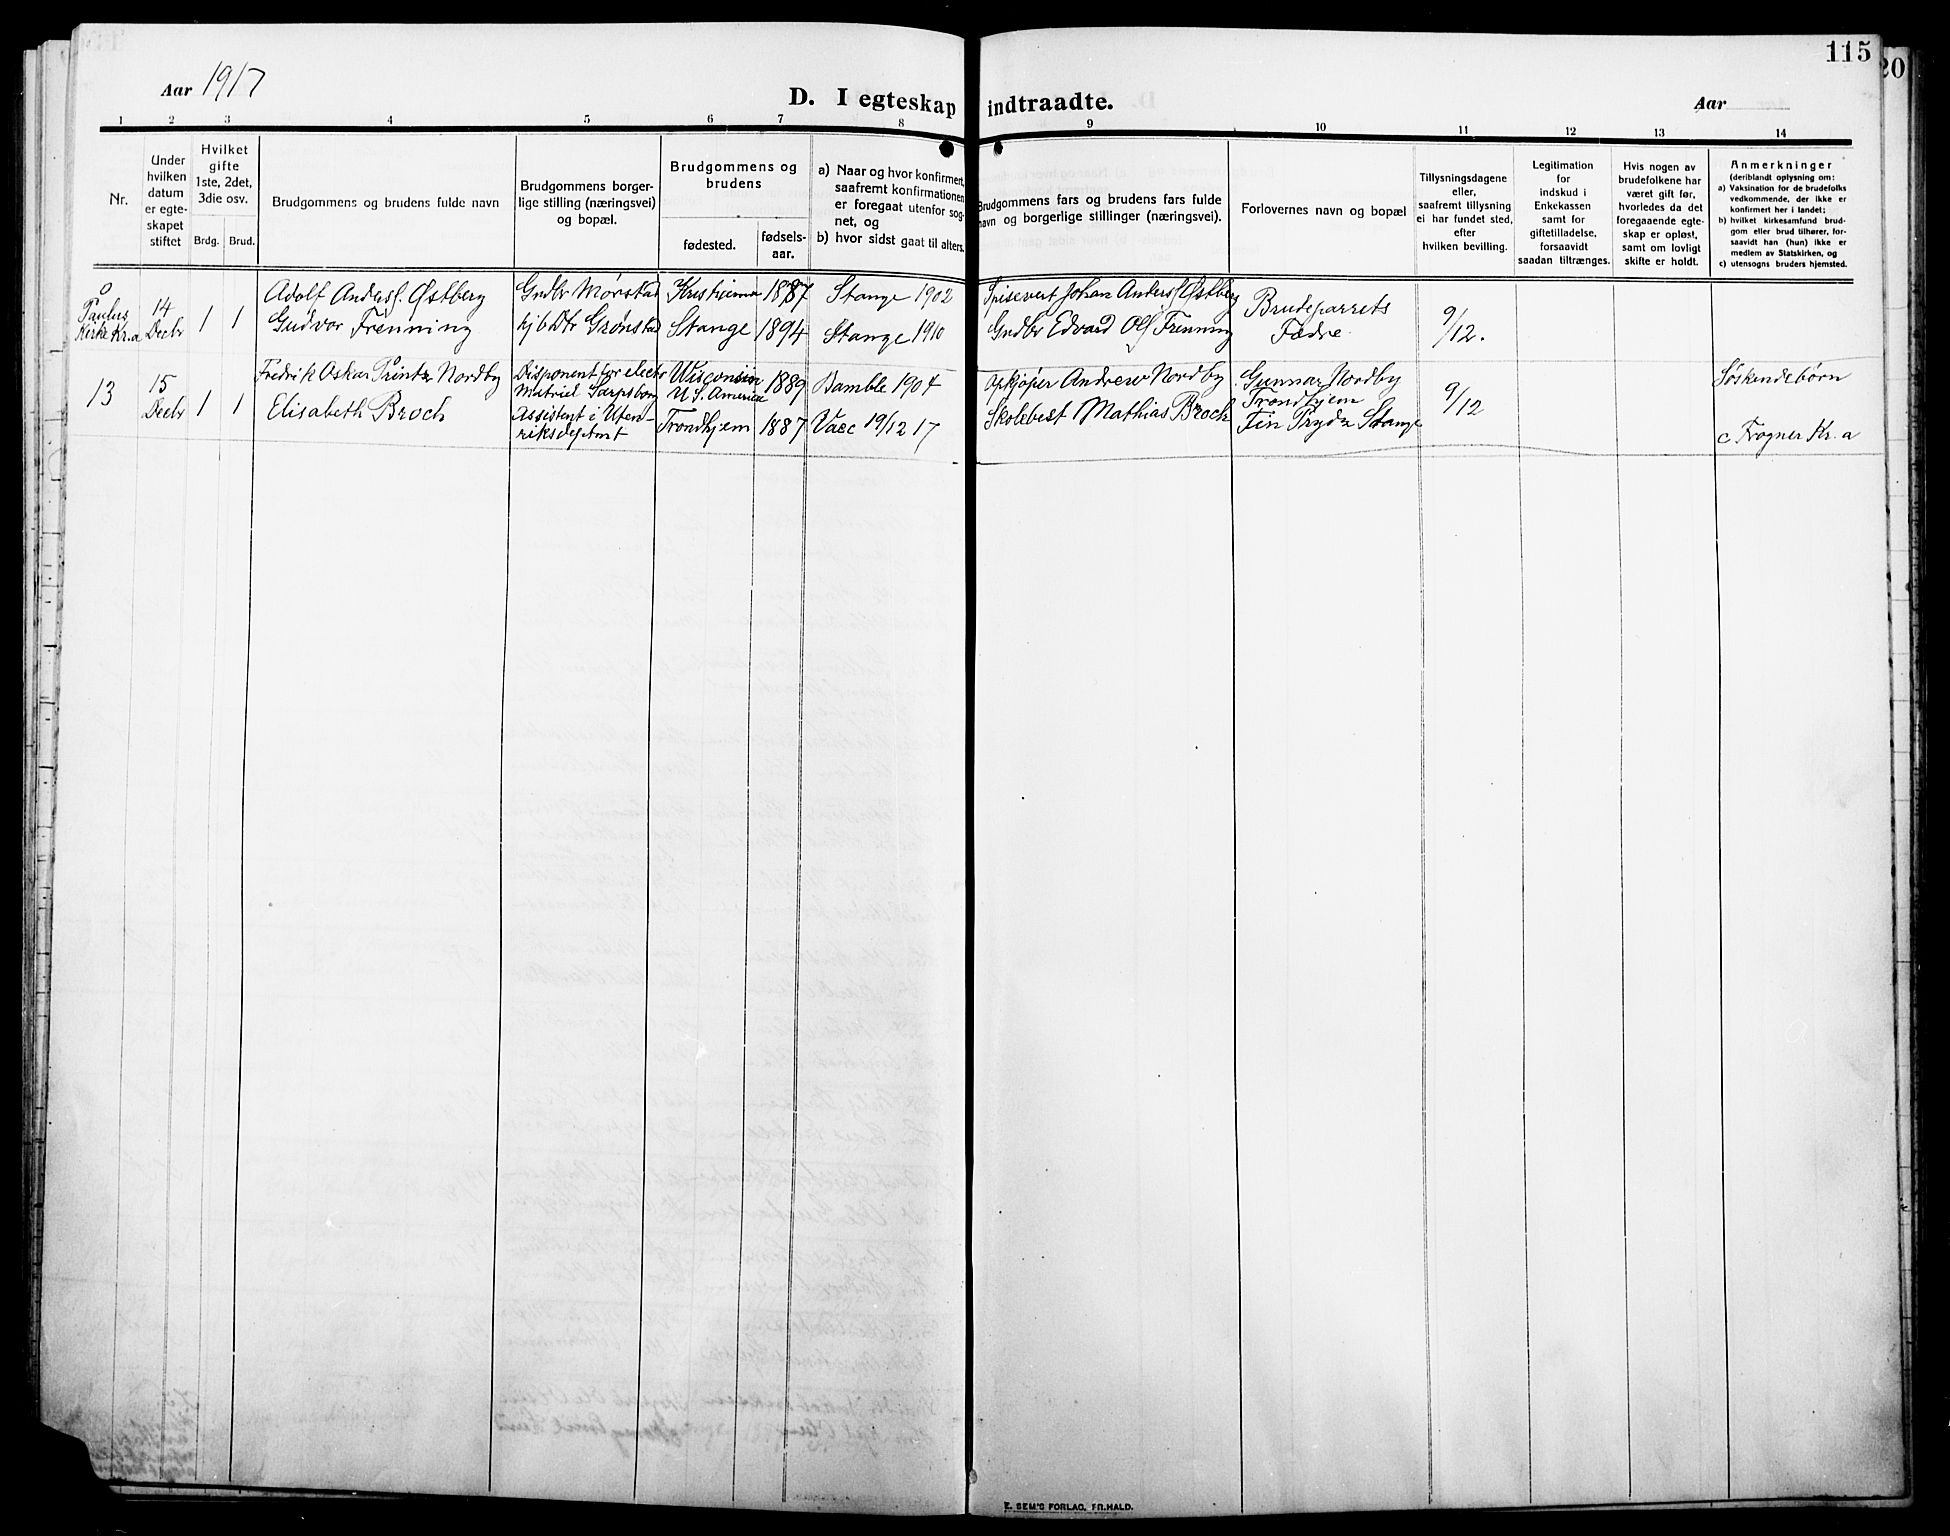 115
20
Aar 1917
D. I egteskap indtraadte.
Aar
1 2 3 4 5 6 7 8 9 10 11 12 13 14
Nr.
Under
hvilken
datum
er egte-
skapet
stiftet
Hvilket
gifte
1ste, 2det,
3die osv.
Brdg. Brud.
Brudgommens og brudens fulde navn
Brudgommens borger-
lige stilling (næringsvei)
og bopæl.
Brudgommens og
brudens
fødested.
fødsels-
aar.
a) Naar og hvor konfirmert,
saafremt konfirmationen
er foregaat utenfor sog-
net, og
b) hvor sidst gaat til alters.
Brudgommens fars og brudens fars fulde
navn og borgerlige stillinger (næringsvei).
Forlovernes navn og bopæl
Tillysningsdagene
eller,
saafremt tillysning
ei har fundet sted,
efter
hvilken bevilling.
Legitimation
for
indskud i
Enkekassen
samt for
giftetilladelse,
forsaavidt
saadan tiltrænges.
Hvis nogen av
brudefolkene har
været gift før,
hvorledes da det
foregaaende egte-
skap er opløst,
samt om lovligt
skifte er holdt.
Anmerkninger
(deriblandt oplysning om:
a) Vaksination for de brudefolks
vedkommende, der ikke er
konfirmert her i landet;
b) hvilket kirkesamfund brud-
gom eller brud tilhører, for-
saavidt han (hun) ikke er
medlem av Statskirken, og
c) utensogns bruders hjemsted.
Paulus
Kirke Kr.a
14
Decbr
1 1
Adolf Anderss. Østberg
Gudvor Frenning
Gndbr Mørstad
hjb Dtr Grønstad
Kristiania 1887
Stange 1894
Stange 1902
Stange 1910
Spisevert Johan Anderss. Østberg
Gndbr Edvard Ols. Frenning
Brudeparrets
Fædre
9/12.
13
15
Decbr
1 1
Fredrik Oskar Printz Nordby
Elisabeth Broch
Disponent for electr
Matriel Sarpsborg
Assistent i Uten-
riksdeptmt
Wisconsin
U. S. America 1889
Trondhjem 1887
Bamble 1904
Vacc 19/12 17
Opkjøper Andrew Nordby
Skolebest Mathias Broch
Gunnar Nordby
Trondhjem
Fin Prydz Stange
9/12
Søskendebørn
c Frogner Kr. a
E. SEM'S FORLAG, FR.HALD.